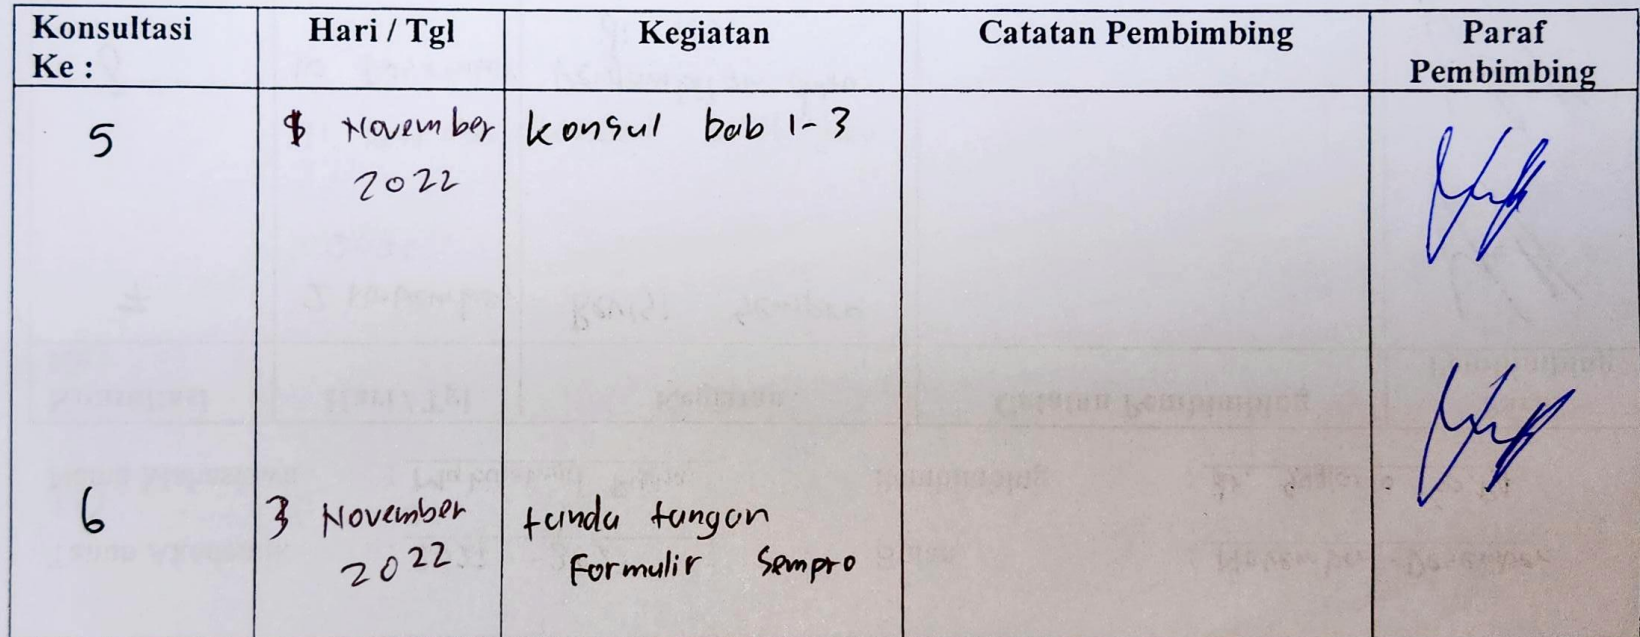 Konsultasi Ke : Hari / Tgl Kegiatan Catatan Pembimbing Paraf Pembimbing
5 November konsul bab 1-3
2022
6 3 November tanda tangan
2022 Formulir Sempro